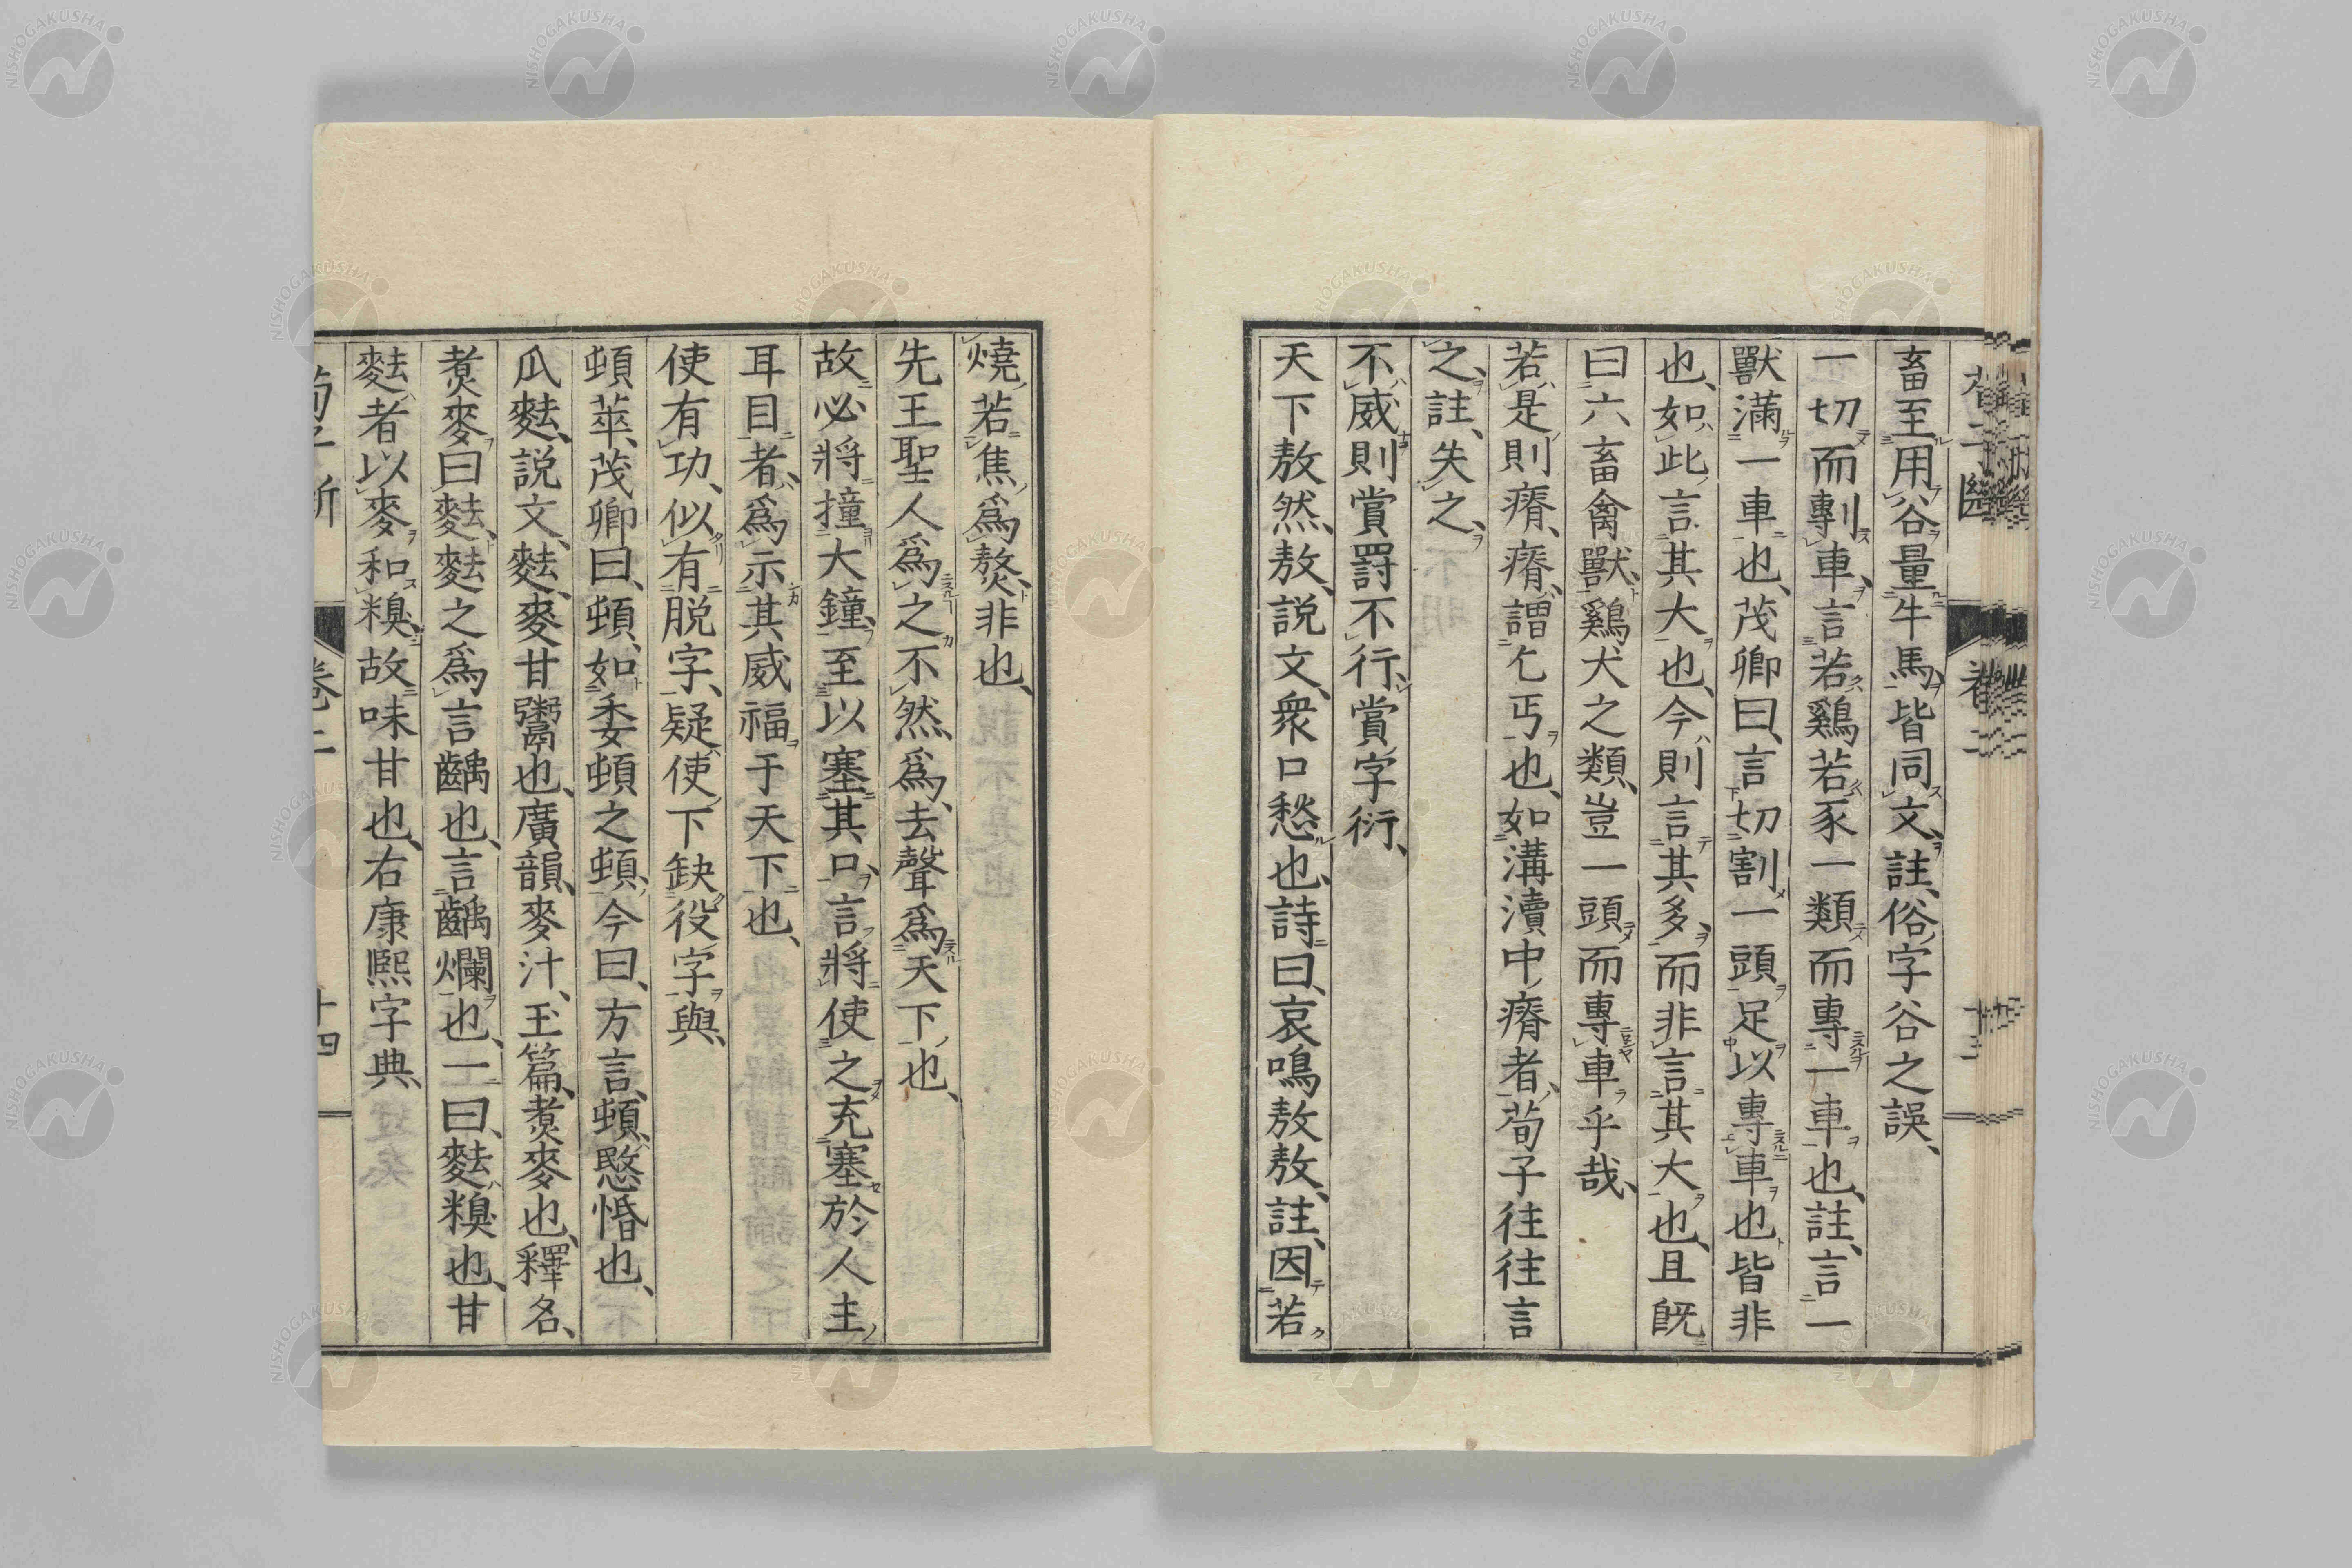 畜至用谷量牛馬、皆同文、註、俗字谷之誤、
一切而剸車、言若鷄若豕一類而專一車也、註、言一
獸滿一車也、茂卿曰、言切割一頭足以專車也皆非
也、如此言其大也、今則言其多、而非言其大也、且既
曰六畜禽獸、鷄犬之類、豈一頭而專車乎哉、
若是則瘠、瘠、謂乞丐也、如溝瀆中瘠者、荀子往往言
之、註、失之、
不威則賞罰不行、賞字衍、
天下敖然、敖、説文、衆口愁也、詩曰、哀鳴敖敖、註、因若
燒、若焦、爲熬、非也、
先王聖人爲之不然、爲、去聲爲天下也、
故必將撞大鐘、至以塞其口、言將使之充塞於人主
耳目者、爲示其威福于天下也、
使有功、似有脱字、疑使下缺役字與、
頓萃、茂卿曰、頓、如委頓之頓、今曰、方言、頓、愍惛也、
瓜麮、説文、麮、麥甘鬻也、廣韻、麥汁、玉篇、煮麥也、釋名、
煮麥曰麮、麮之爲言齲也、言齲爛也、一曰、麮、糗也、甘
麮者以麥和糗、故味甘也、右康熙字典、
卷二
十四